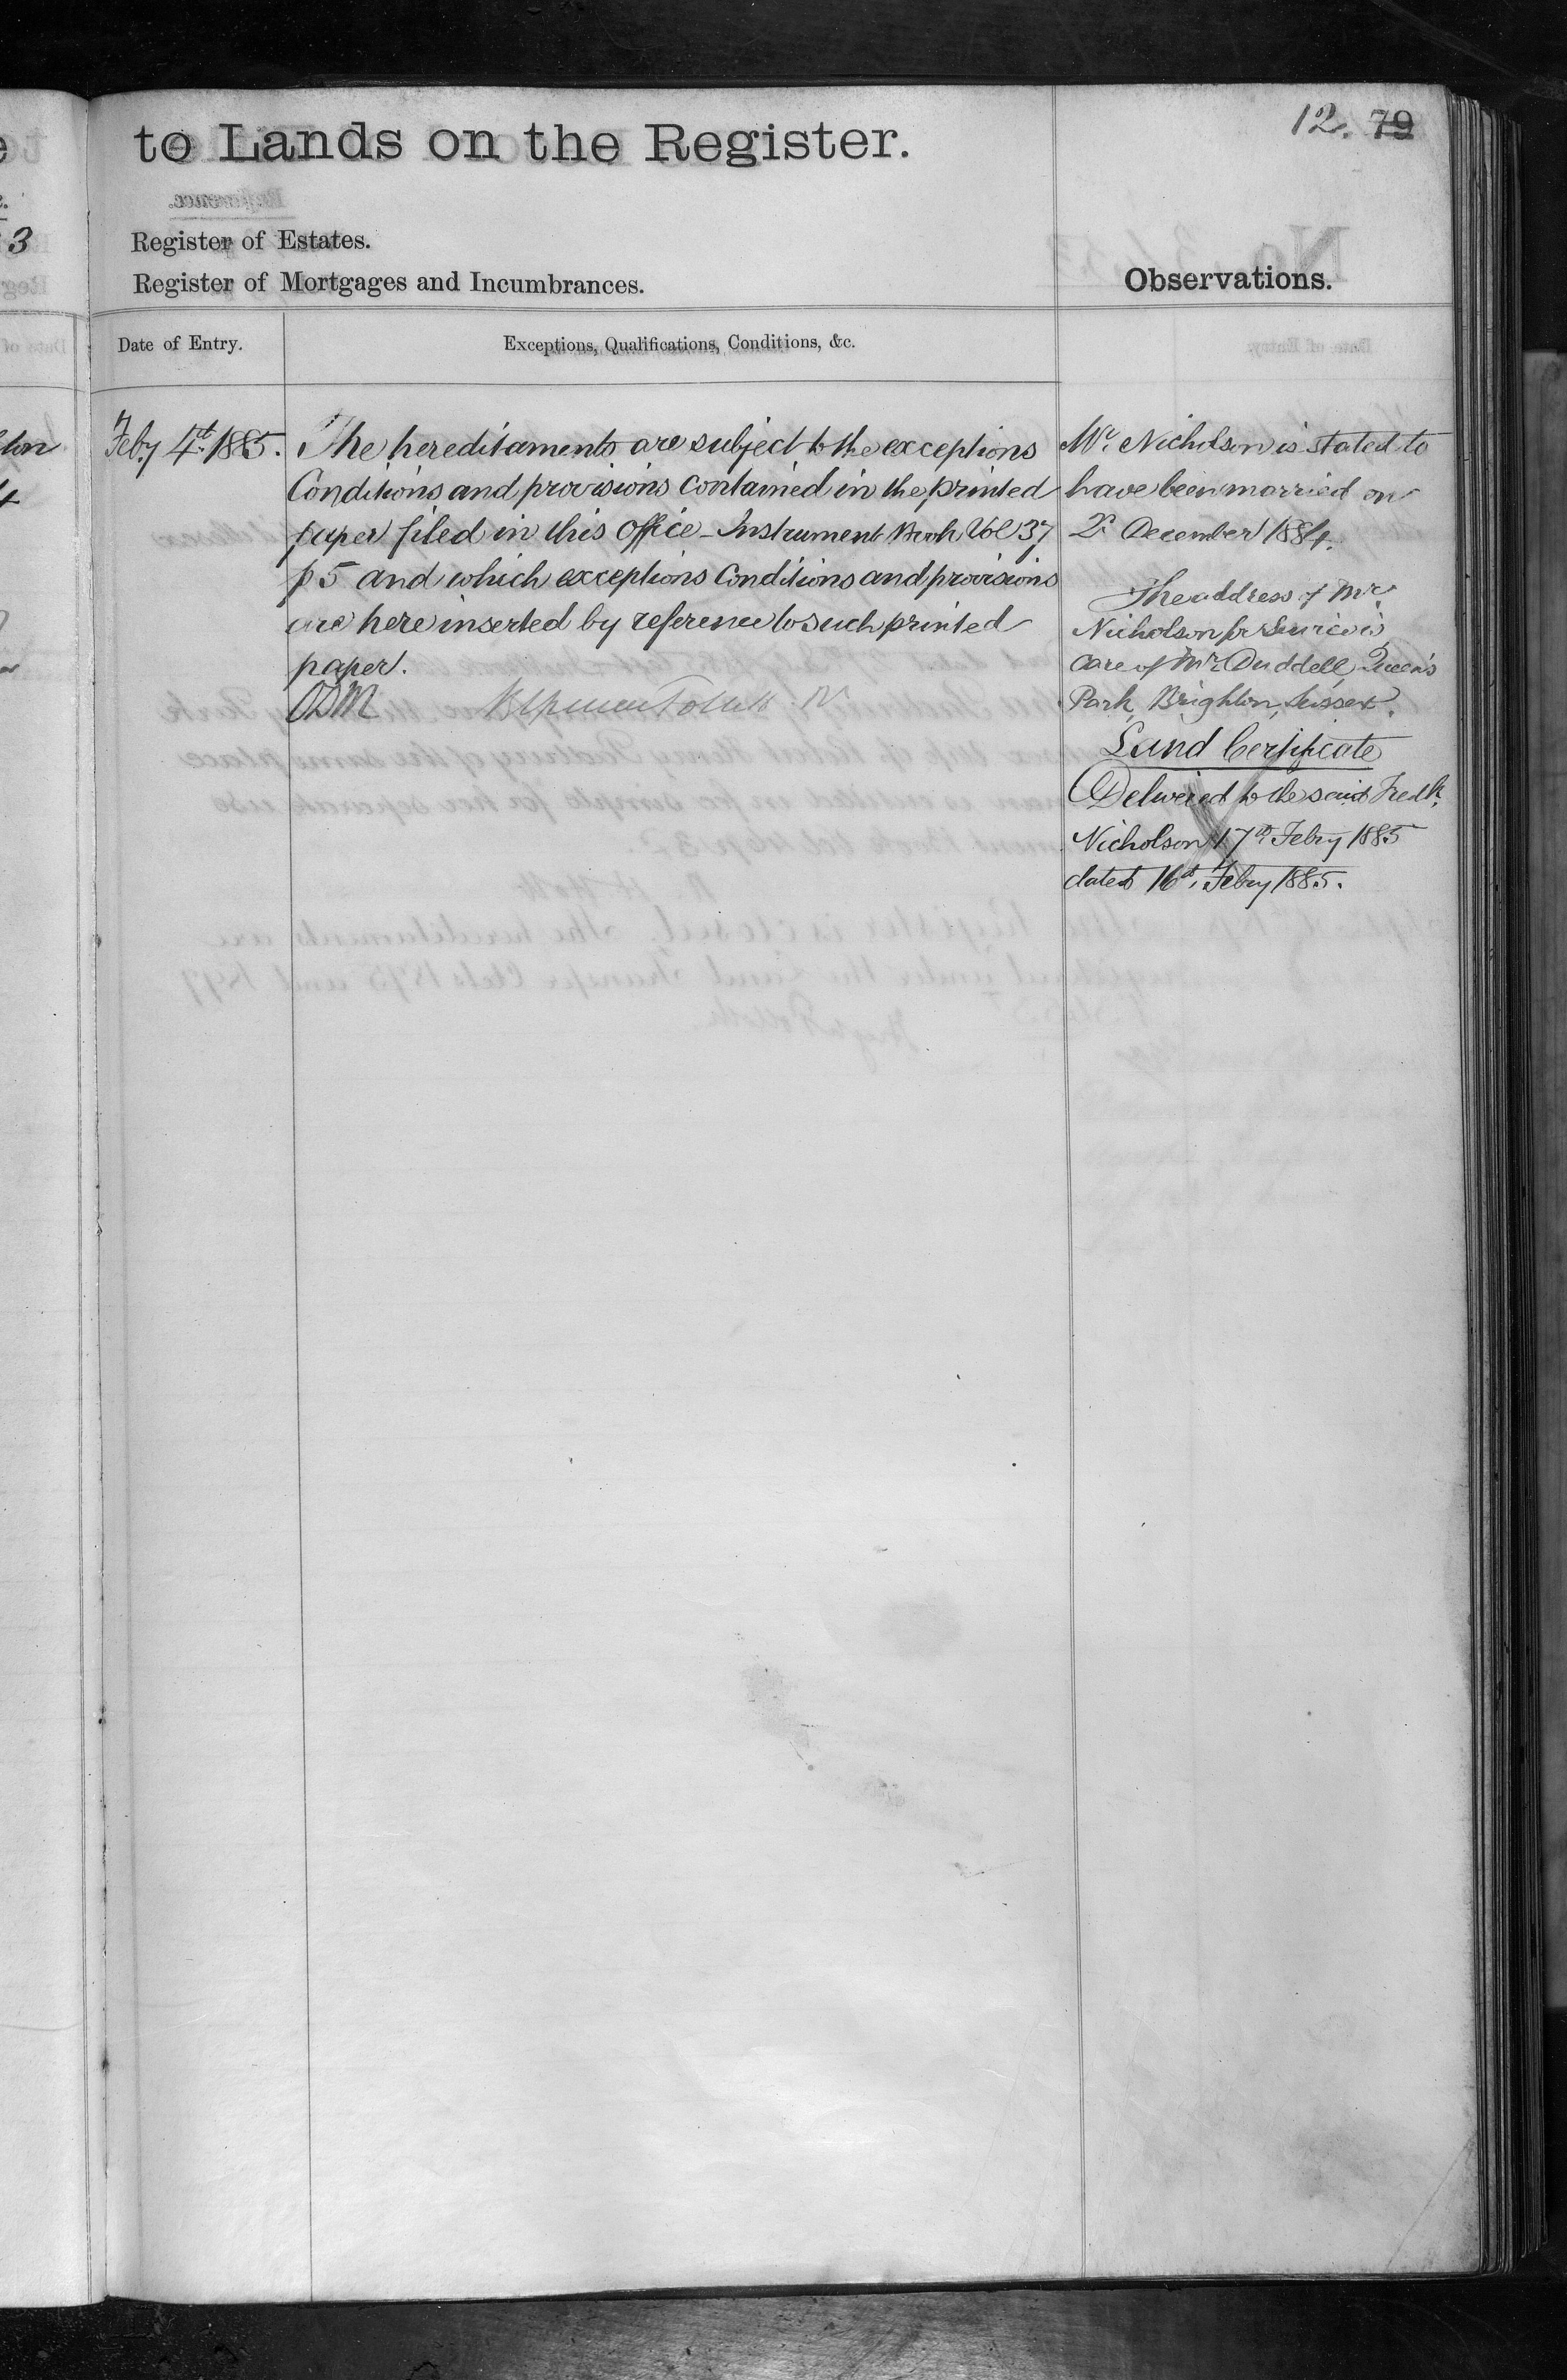 12. 79
to Lands on the Register.
Register of Estates.
Register of Mortgages and Incumbrances.
Observations.
Date of Entry.
Exceptions, Qualifications, Conditions, &c.
Feby 4th 1885.
The hereditaments are subject to the exceptions
Conditions and provisions contained in the printed
paper filed in this Office - Instrument Book Vol 37
p 5 and which exceptions Conditions and provisions
are here inserted by reference to such printed
paper.
ODM
Mr. Nicholson is stated to
have been married on
2d December 1884.
The address of Mr.
Nicholson for Service is
care of Mr Duddell, Queen's
Park, Brighton, Sussex.
Land Certificate
Delivered to the said Fredk.
Nicholson 17th Febry 1885
dated 16th, Febry 1885.